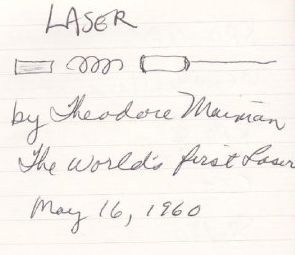 LASER
by Theodore Maiman
The World's first Laser
May 16, 1960